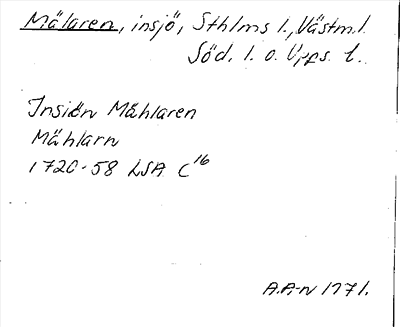 Mälaren, insjö, Sthlms l., Västm.l.
Söd. l. o. Upps. l.
Insiön Mählaren
Mählarn
1720-58 LSA C16
A.A-n 1971.